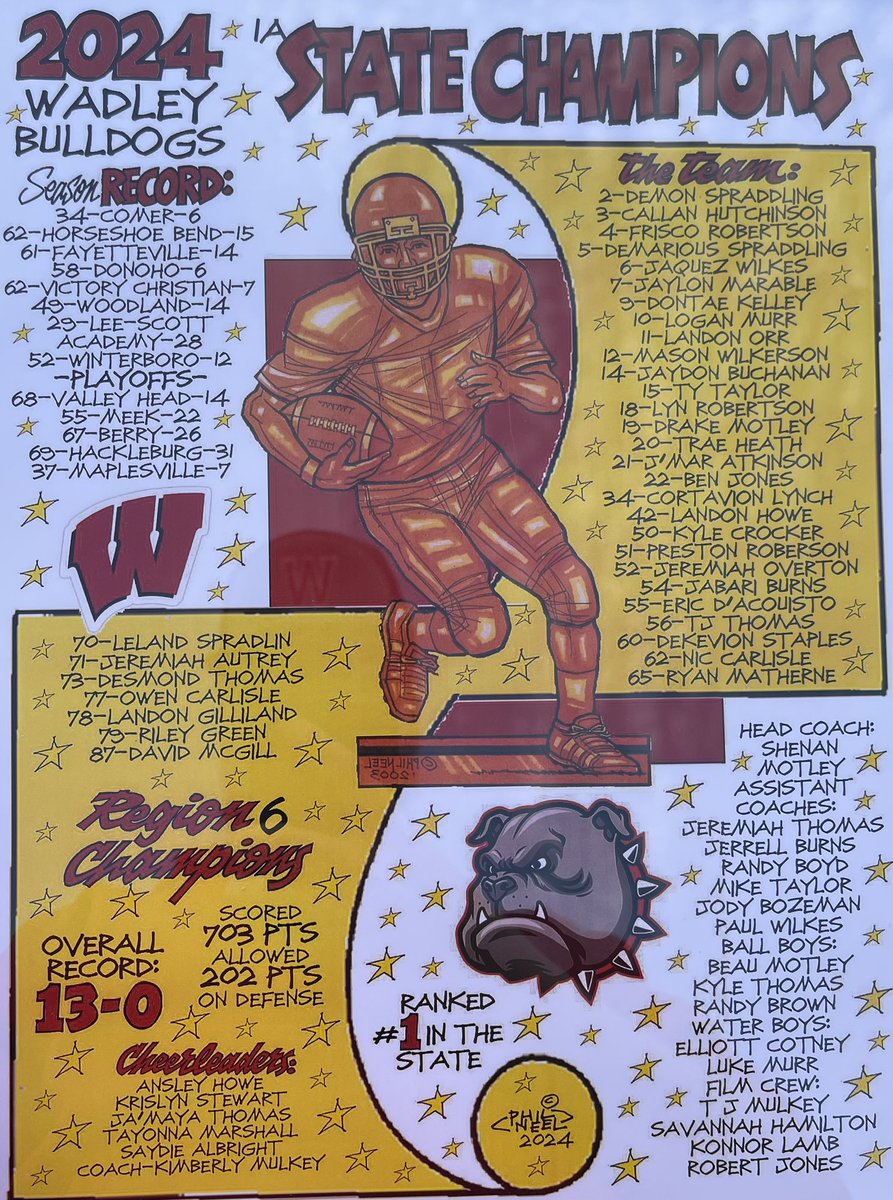 2024
WADLEY
BULLDOGS
1A STATE CHAMPIONS
Season RECORD:
34-COMER-6
62-HORSESHOE BEND-15
61-FAYETTEVILLE-14
58-DONOHO-6
62-VICTORY CHRISTIAN-7
49-WOODLAND-14
29-LEE-SCOTT
ACADEMY-28
52-WINTERBORO-12
-PLAYOFFS-
68-VALLEY HEAD-14
55-MEEK-22
67-BERRY-26
69-HACKLEBURG-31
37-MAPLESVILLE-7
W
the team:
2-DEMON SPRADDLING
3-CALLAN HUTCHINSON
4-FRISCO ROBERTSON
5-DEMARIOUS SPRADDLING
6-JAQUEZ WILKES
7-JAYLON MARABLE
9-DONTAE KELLEY
10-LOGAN MURR
11-LANDON ORR
12-MASON WILKERSON
14-JAYDON BUCHANAN
15-TY TAYLOR
18-LYN ROBERTSON
19-DRAKE MOTLEY
20-TRAE HEATH
21-J'MAR ATKINSON
22-BEN JONES
34-CORTAVION LYNCH
42-LANDON HOWE
50-KYLE CROCKER
51-PRESTON ROBERSON
52-JEREMIAH OVERTON
54-JABARI BURNS
55-ERIC D'ACQUISTO
56-TJ THOMAS
60-DEKEVION STAPLES
62-NIC CARLISLE
65-RYAN MATHERNE
70-LELAND SPRADLIN
71-JEREMIAH AUTREY
73-DESMOND THOMAS
77-OWEN CARLISLE
78-LANDON GILLILAND
79-RILEY GREEN
87-DAVID MCGILL
©PHIL NEEL
2003
Region 6
Champions
OVERALL
RECORD:
13-0
SCORED
703 PTS
ALLOWED
202 PTS
ON DEFENSE
Cheerleaders:
ANSLEY HOWE
KRISLYN STEWART
JA'MAYA THOMAS
TAYONNA MARSHALL
SAYDIE ALBRIGHT
COACH-KIMBERLY MULKEY
RANKED
#1 IN THE
STATE
©
PHIL
NEEL
2024
HEAD COACH:
SHENAN
MOTLEY
ASSISTANT
COACHES:
JEREMIAH THOMAS
JERRELL BURNS
RANDY BOYD
MIKE TAYLOR
JODY BOZEMAN
PAUL WILKES
BALL BOYS:
BEAU MOTLEY
KYLE THOMAS
RANDY BROWN
WATER BOYS:
ELLIOTT COTNEY
LUKE MURR
FILM CREW:
T J MULKEY
SAVANNAH HAMILTON
KONNOR LAMB
ROBERT JONES